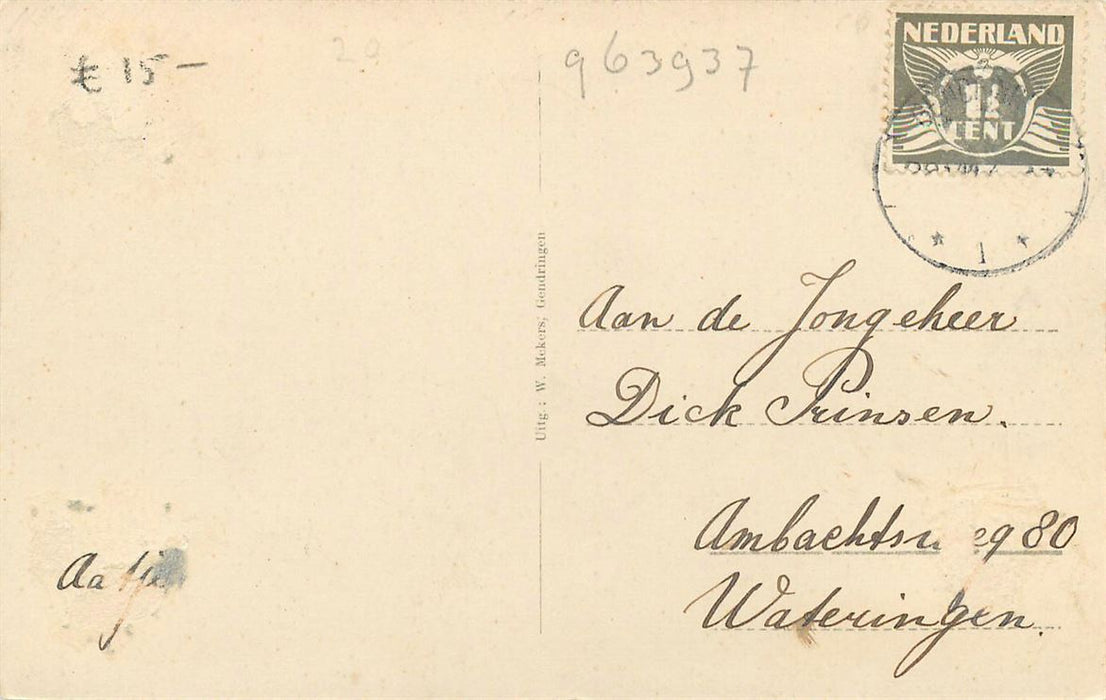 € 15 —
963937
NEDERLAND
1½
CENT
1
Uitg : W. Mekers, Gendringen
Aan de Jongeheer
Dick Prinsen.
Ambachtsweg 80
Wateringen.
Aatje